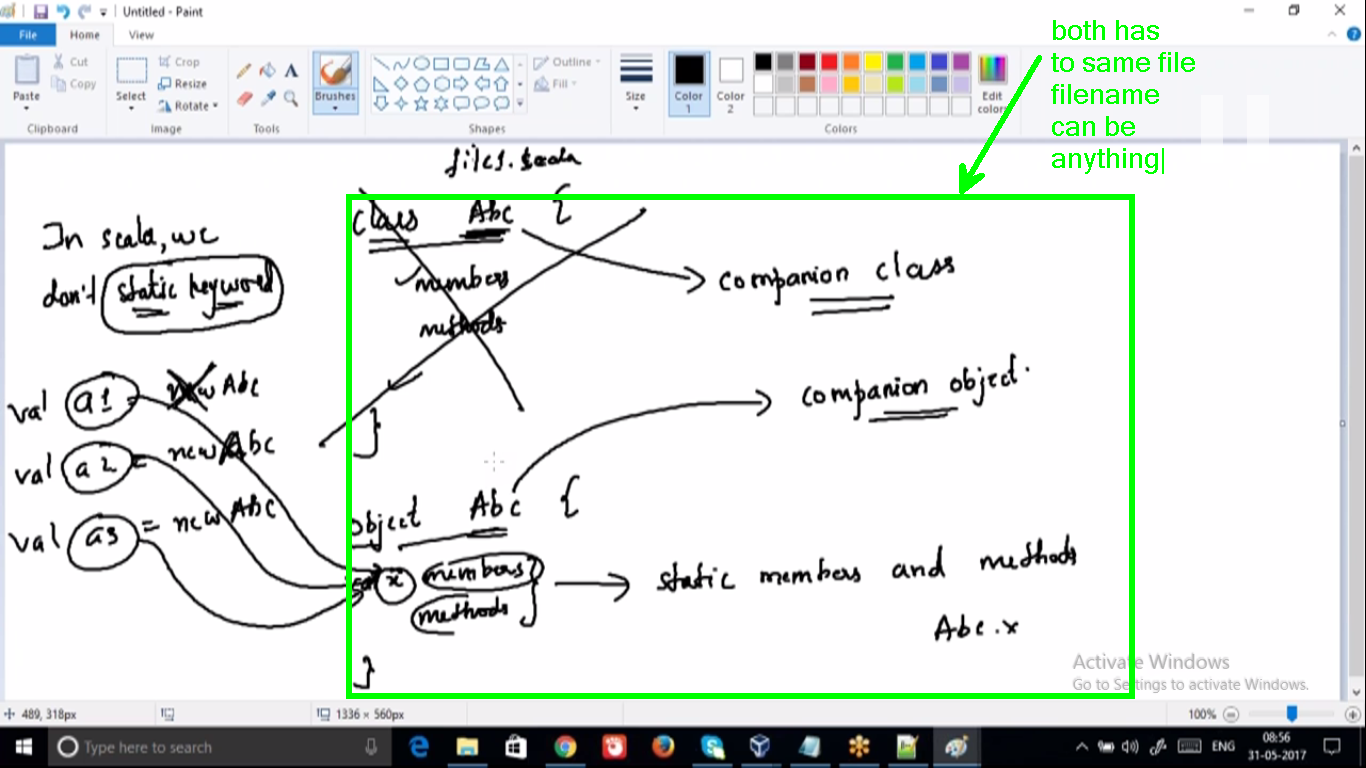 Untitled - Paint
File
Home
View
Paste
Cut
Copy
Clipboard
Select
Crop
Resize
Rotate
Image
Tools
Brushes
Shapes
Outline
Fill
Size
Color 1
Color 2
Edit colors
Colors
both has
to same file
filename
can be
anything
file1.scala
class Abc {
members
methods
}
companion class
In scala, we
don't static keyword
val a1 = new Abc
val a2 = new Abc
val a3 = new Abc
companion object.
object Abc {
x members
methods
}
static members and methods
Abc.x
Activate Windows
Go to Settings to activate Windows.
489, 318px
1336 × 560px
100%
Type here to search
ENG
08:56
31-05-2017